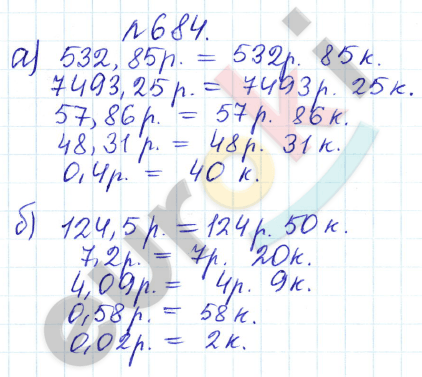 №684.
а) 532,85р. = 532р. 85к.
7493,25р. = 7493р. 25к.
57,86р. = 57р. 86к.
48,31р. = 48р. 31к.
0,4р. = 40 к.
б) 124,5р. = 124р. 50к.
7,2р. = 7р. 20к.
4,09р. = 4р. 9к.
0,58р. = 58к.
0,02р. = 2к.
euroki